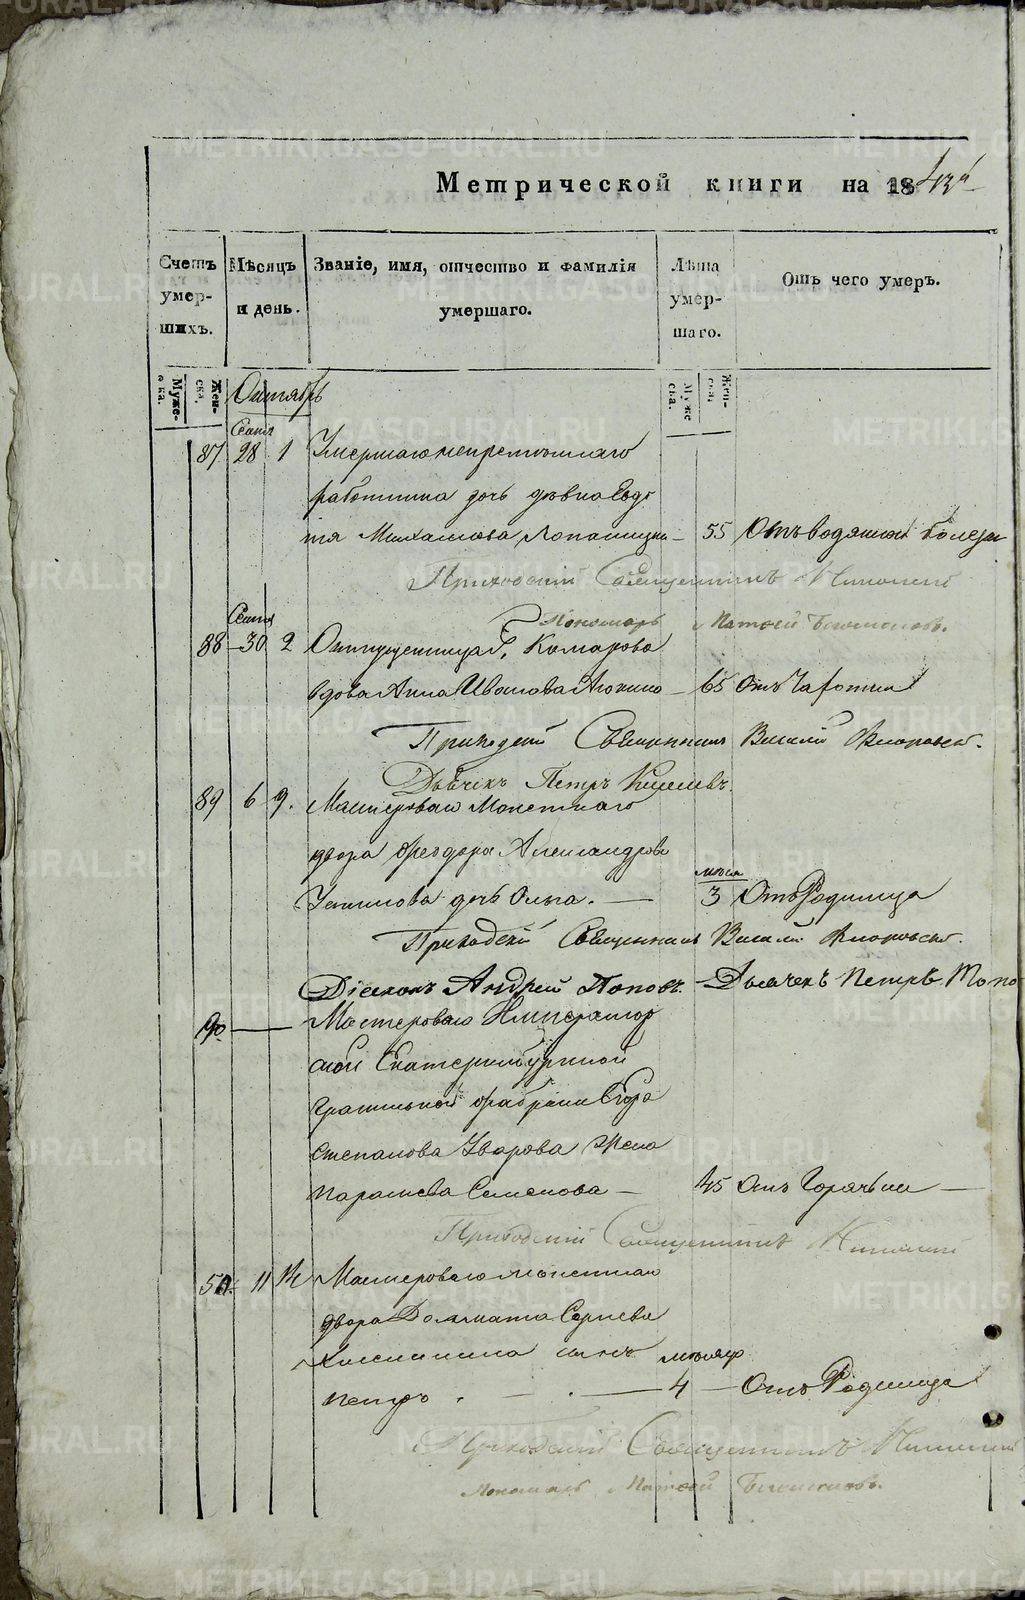 Метрической книги на 1843й
Счетъ умер- шихъ.
Мѣсяцъ и день.
Званіе, имя, отчество и фамилія умершаго.
Лѣта умер- шаго.
Отъ чего умеръ.
Муже- ска. Жен- ска.
Муже ска. Жен- ска.
Октябрь
Сентя
87 28 1 Умершаго непремѣннаго
работника дочь дѣвка Евдо
тя Михайлова Лопатина 55 Отъ водяной болезни
Приходскій Священникъ Николай
Сентя Пономарь Матѳей
88 30 2 Отпущеница Г. Комарова
вдова Анна Иванова 65 Отъ Чахотки
Приходскій Священникъ Василій Флоровск.
Дьячекъ Петръ
89 6 9. Мастероваго Монетнаго
двора Ѳеодора Александрова
дочь Ольга. мѣся 3 Отъ Родимца
Приходскій Священникъ Василій Флоровскі.
Діаконъ Андрей Поповъ. Дьячекъ Петръ Топо
90 Мастероваго Император
ской Екатеринбургской
гранильной фабрики Егора
Степанова Уварова жена
Параскева Семенова 45 Отъ Горячьки
Приходскій Священникъ Николай
50. 11 14 Мастероваго монетнаго
двора Далмата Сергѣева
сынъ мѣсяц
Петръ. 4 Отъ Родимца
Приходскій Священникъ Николай
Пономарь Матѳей
METRIKI.GASO-URAL.RU